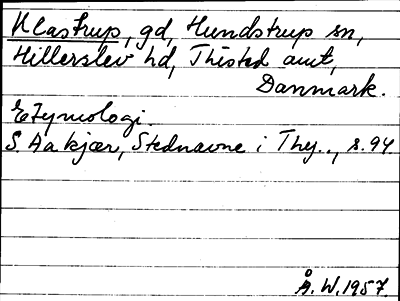 Klastrup, gd, Hundstrup sn,
Hillerslev hd, Thisted amt,
Danmark.
Etymologi.
S. Aakjær, Stednavne i Thy.., s. 94
Å. W. 1957.